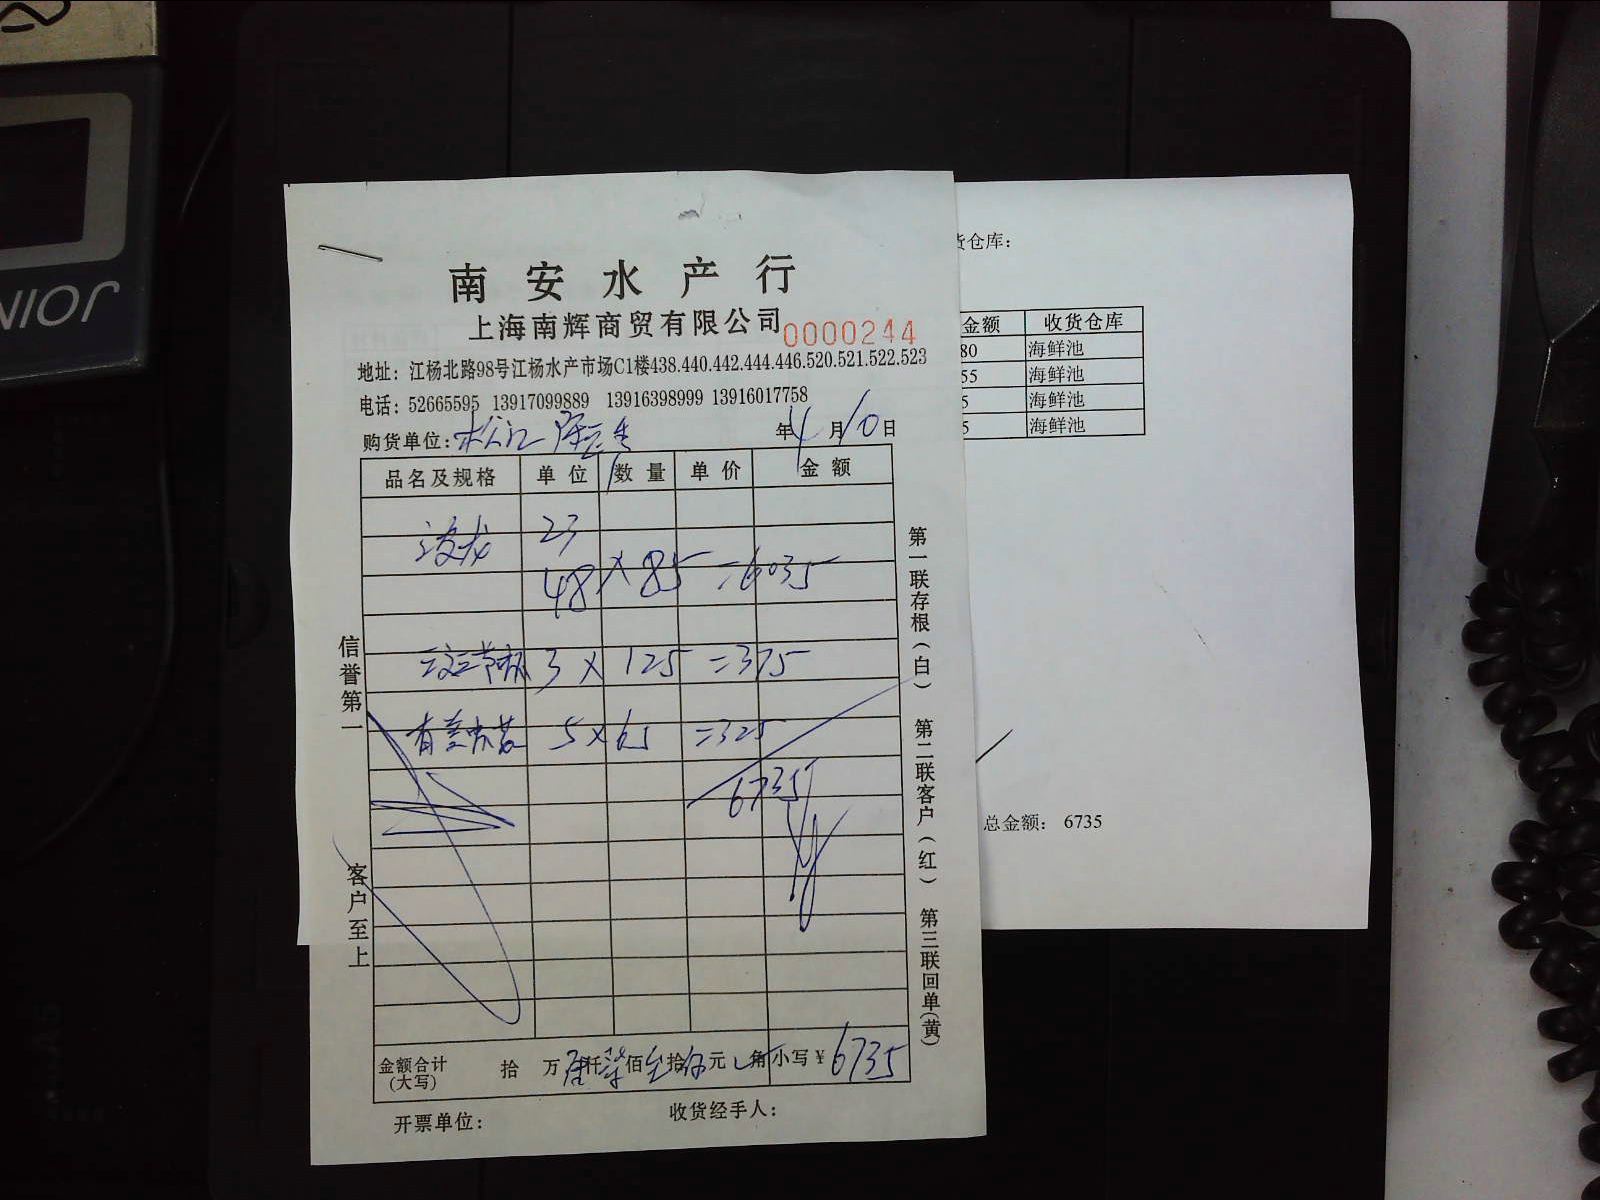 JOIN
南安水产行
上海南辉商贸有限公司 0000244
地址：江杨北路98号江杨水产市场C1楼438.440.442.444.446.520.521.522.523
电话：52665595 13917099889 13916398999 13916017758
购货单位：松江 年4月10日
品名及规格 单位 数量 单价 金额
波龙 23
48 × 85 =6035
3 × 125 =375
5 × 65 =325
6735
金额合计(大写) 拾 万 陆仟柒佰 拾 元 角 小写￥6735
开票单位： 收货经手人：
信誉第一 客户至上
第一联存根(白) 第二联客户(红) 第三联回单(黄)
货仓库：
金额 收货仓库
80 海鲜池
55 海鲜池
5 海鲜池
5 海鲜池
总金额： 6735